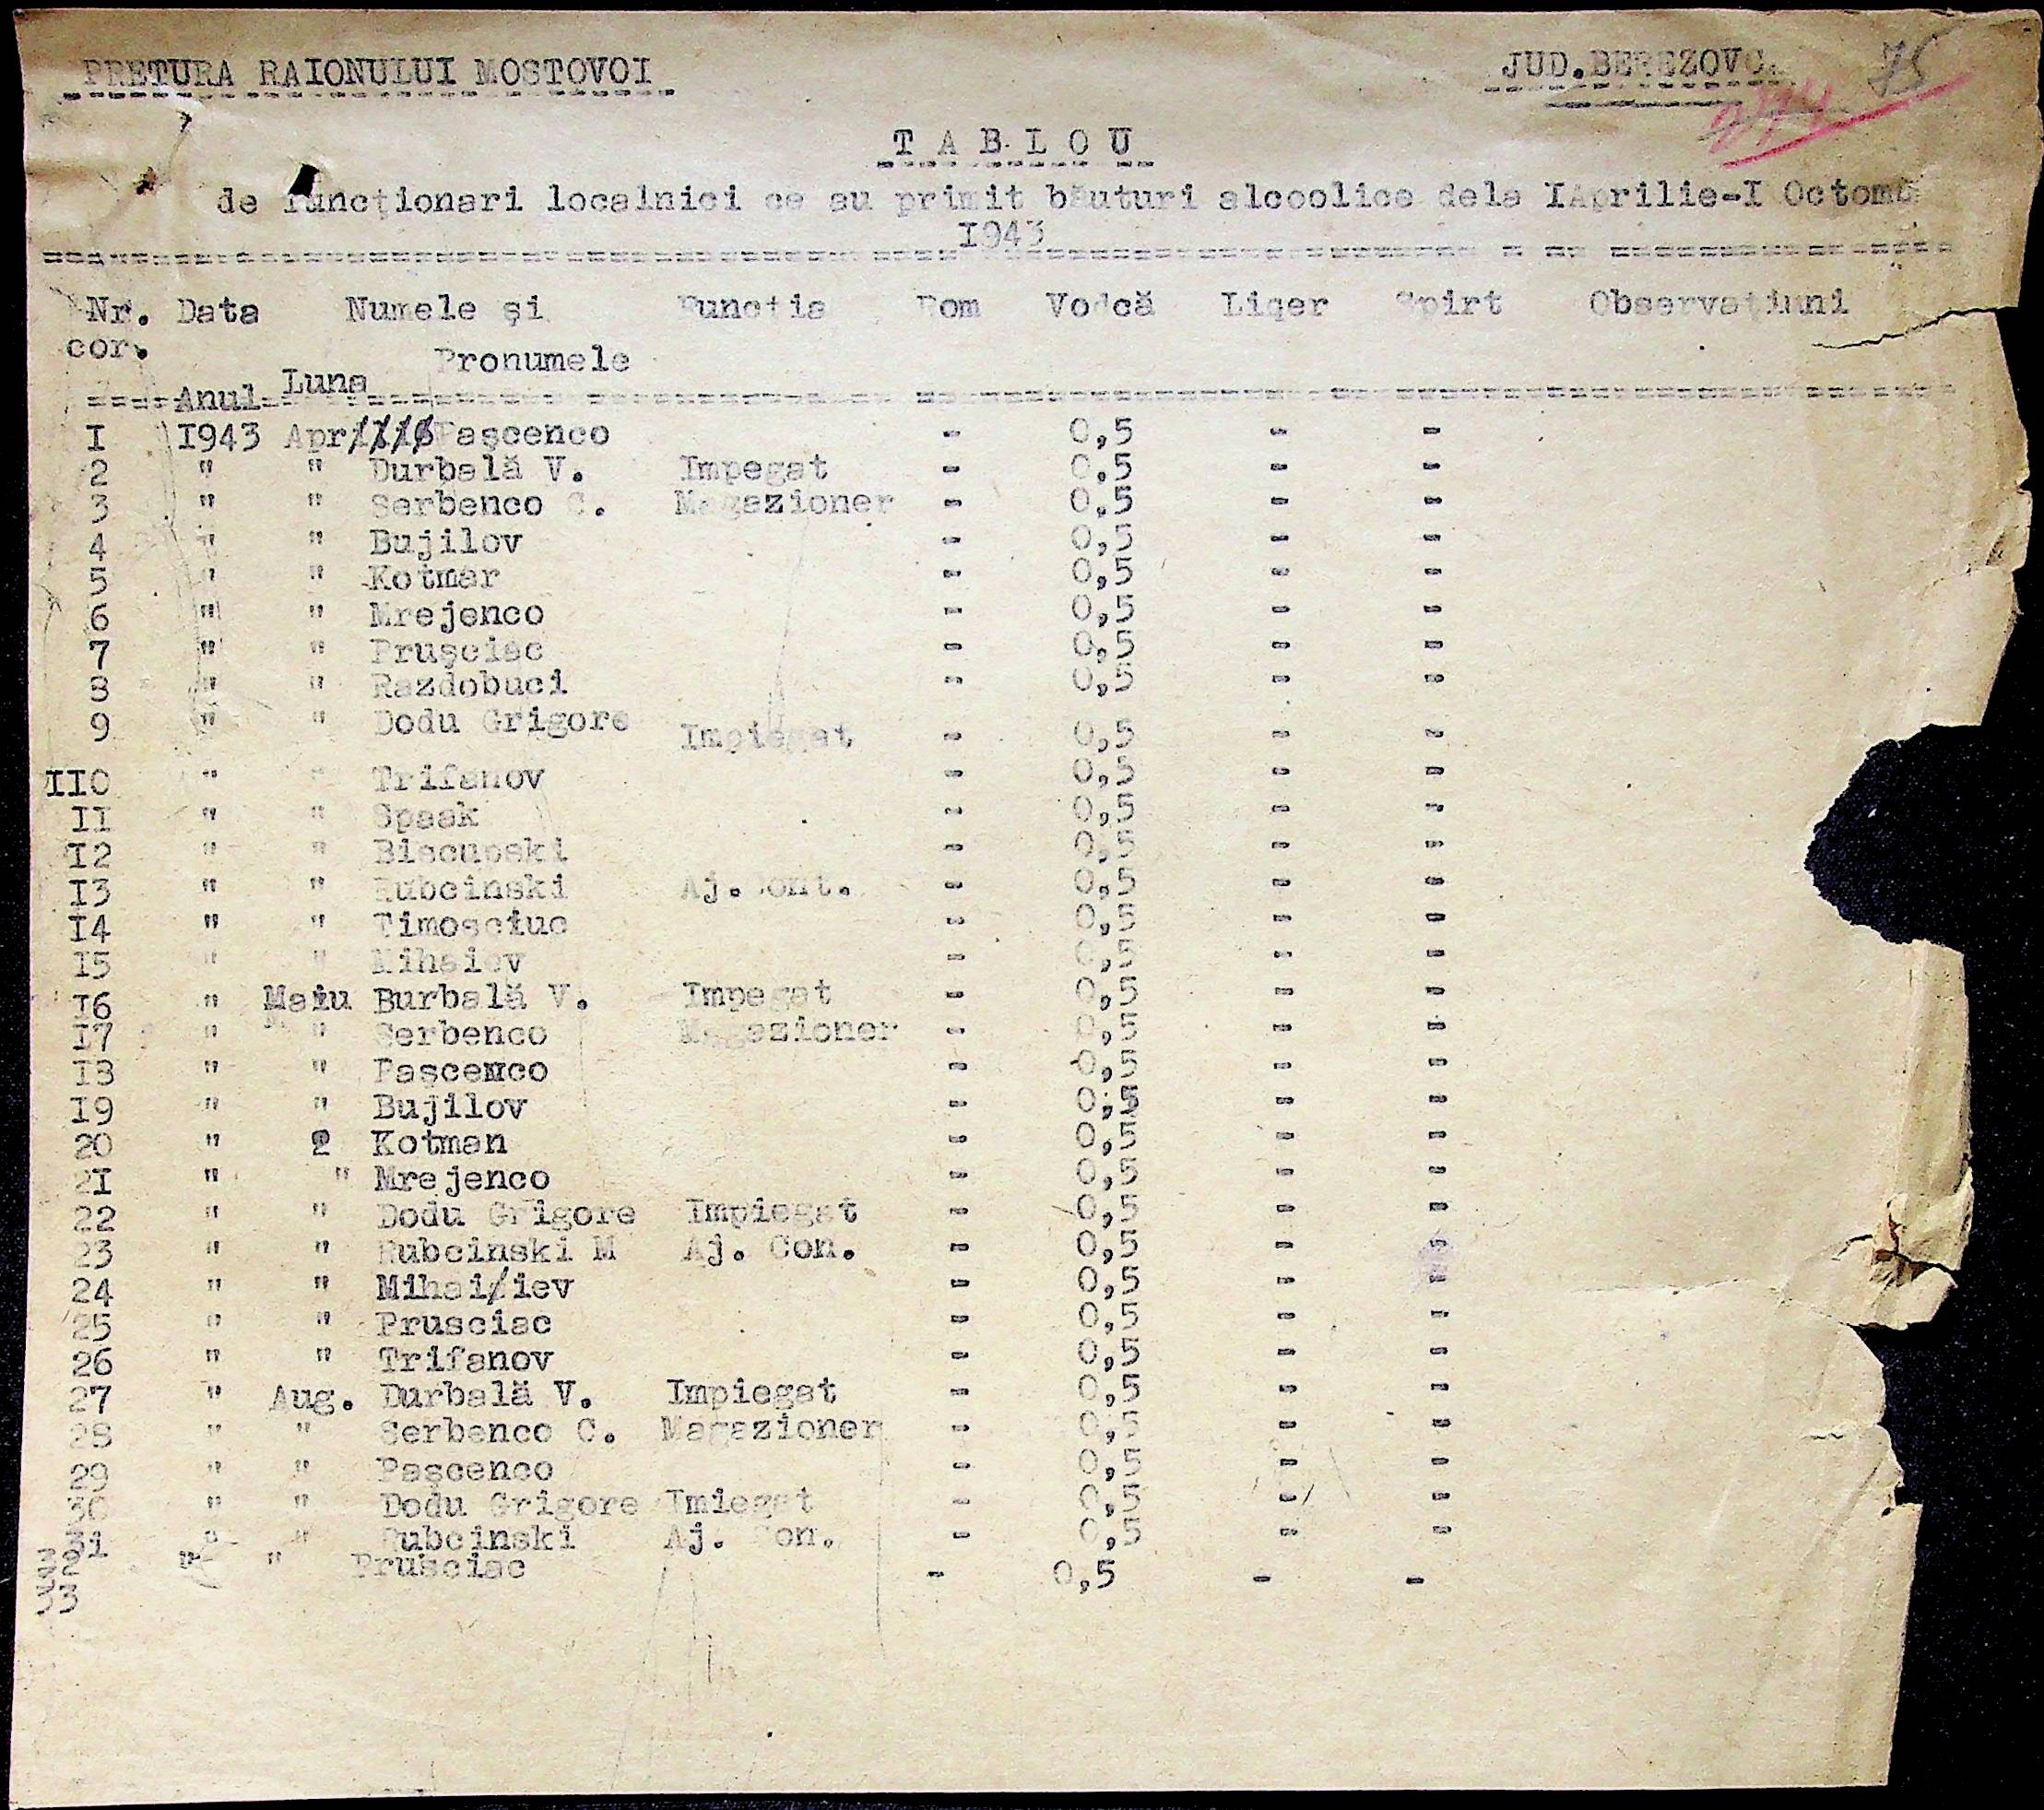 PRETURA RAIONULUI MOSTOVOI JUD.BEREZOVCA 75
TABLOU
de funcționari localnici ce au primit băuturi alcoolice dela IAprilie-I Octomb
I943
Nr. Data Numele și Functia Rom Vodcă Liqer Spirt Observațiuni
cor. Pronumele
Anul Luna
I I943 Aprilie Pașcenco - 0,5 - -
2 " " Durbală V. Impegat - 0.5 - -
3 " " Serbenco C. Magazioner - 0,5 - -
4 " " Bujilov - 0,5 - -
5 " " Kotmar - 0,5 - -
6 " " Mrejenco - 0,5 - -
7 " " Prușciac - 0,5 - -
8 " " Razdobuci - 0,5 - -
9 " " Dodu Grigore Impiegat - 0,5 - -
II0 " " Trifanov - 0,5 - -
II " " Spaak - 0,5 - -
I2 " " - 0,5 - -
I3 " " Rubcinski Aj.Cont. - 0,5 - -
I4 " " Timosciuc - 0,5 - -
I5 " " Mihaiev - 0,5 - -
I6 " Maiu Burbală V. Impegat - 0,5 - -
I7 " " Serbenco Magazioner - 0,5 - -
I8 " " Pașcenco - 0,5 - -
I9 " " Bujilov - 0,5 - -
20 " 2 Kotman - 0,5 - -
2I " " Mrejenco - 0,5 - -
22 " " Dodu Grigore Impiegat - 0,5 - -
23 " " Rubcinski M Aj. Con. - 0,5 - -
24 " " Mihai/iev - 0,5 - -
25 " " Prusciac - 0,5 - -
26 " " Trifanov - 0,5 - -
27 " Aug. Durbală V. Impiegat - 0,5 - -
28 " " Serbenco C. Magazioner - 0,5 - -
29 " " Pașcenco - 0,5 - -
30 " " Dodu Grigore Imiegat - 0,5 - -
3i " " Rubcinski Aj. Con. - 0,5 - -
32 " " Prusciac - 0,5 - -
33